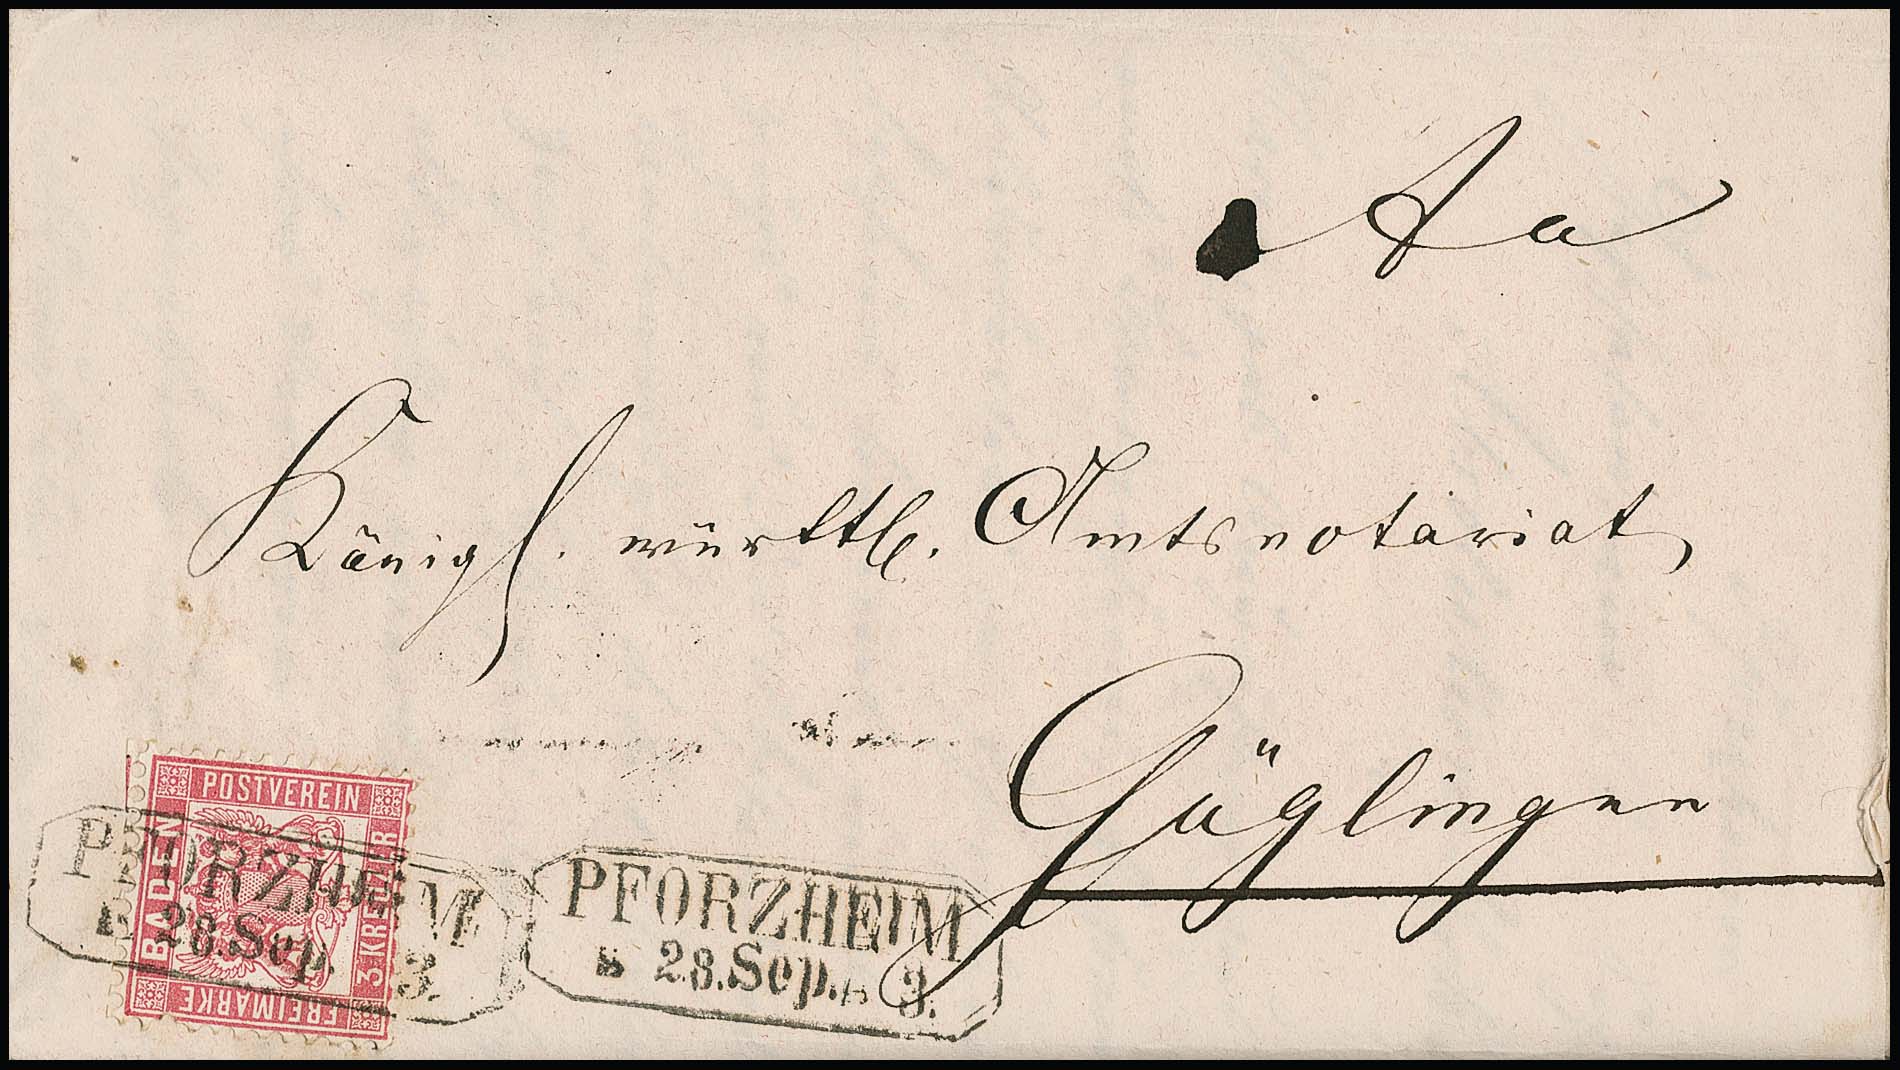 An
Königl. württb. Amtsnotariat
Güglingen
POSTVEREIN
BADEN
3 KREUZER
FREIMARKE
PFORZHEIM
28. Sep. 3.
PFORZHEIM
28. Sep. 3.